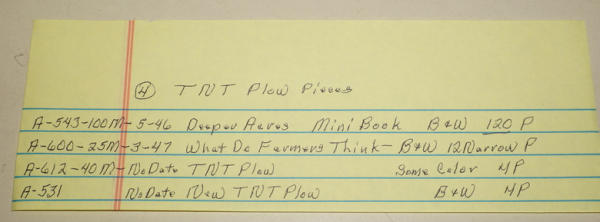 ④ TNT Plow Pieces
A-543-100M-5-46 Deeper Acres Mini Book B&W 120 P
A-600-25M-3-47 What Do Farmers Think - B&W 12 Narrow P
A-612-40M-No Date TNT Plow Some Color 4P
A-531 No Date New TNT Plow B&W 4P